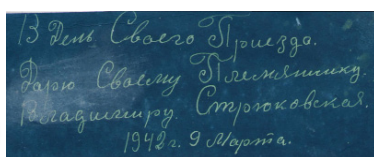 В День Своего Приезда.
Дарю Своему Племяннику.
Владимиру. Стрюковская.
1942 г. 9 Марта.